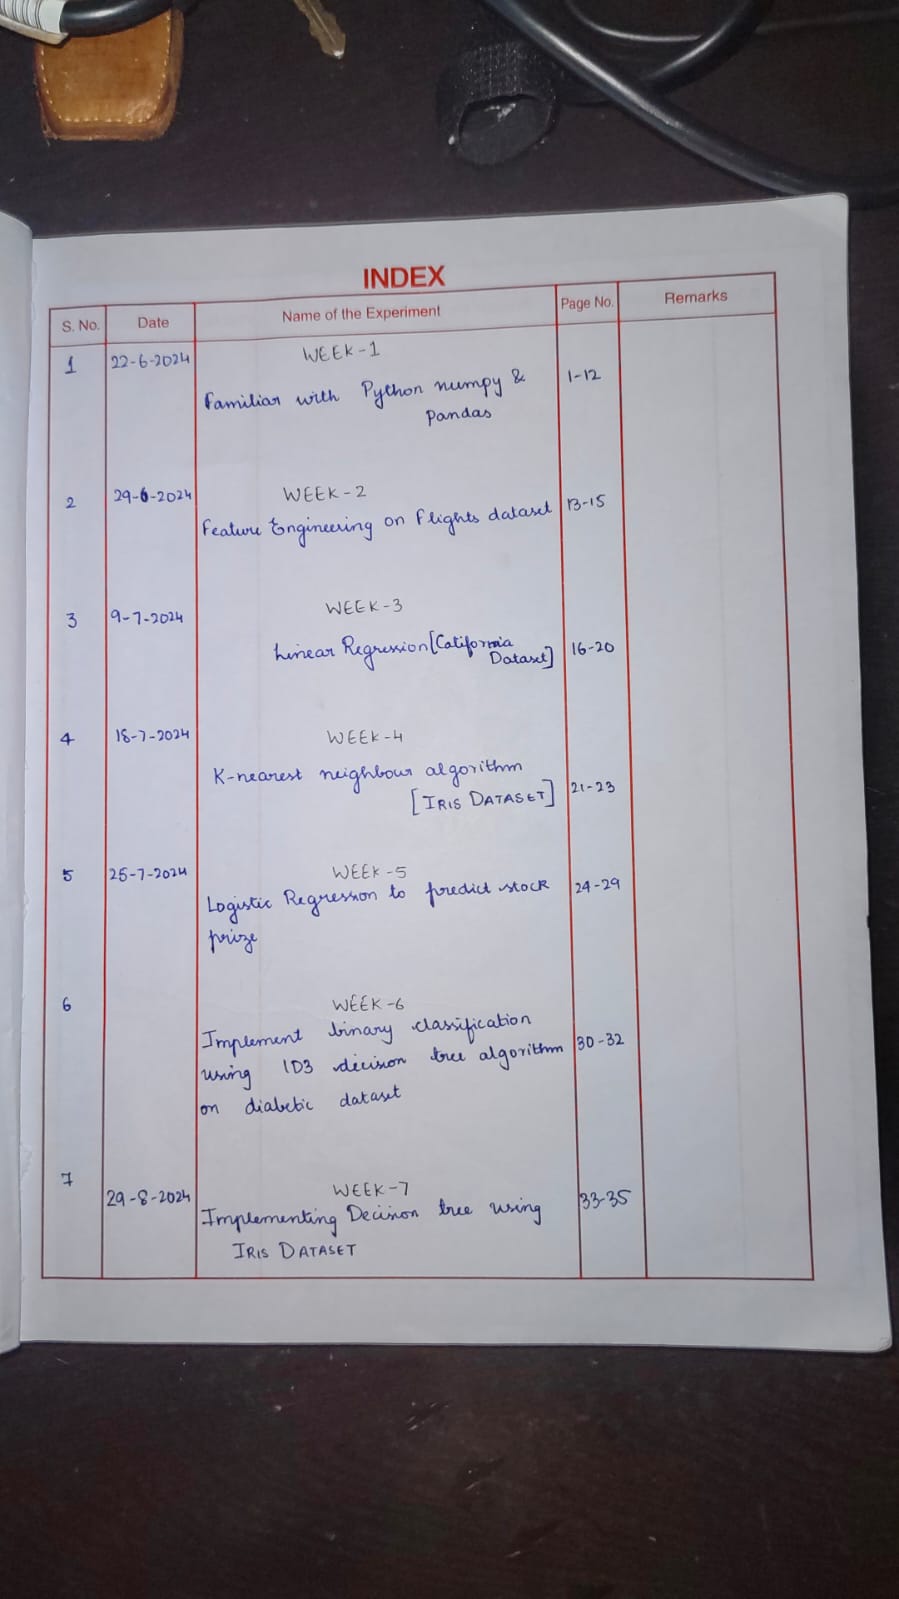 INDEX
S. No. Date Name of the Experiment Page No. Remarks
1 22-6-2024 WEEK-1
Familiar with Python numpy & 1-12
Pandas
2 29-6-2024 WEEK-2
Feature Engineering on Flights dataset 13-15
3 9-7-2024 WEEK-3
Linear Regression [California 16-20
Dataset]
4 18-7-2024 WEEK-4
K-nearest neighbour algorithm
[IRIS DATASET] 21-23
5 25-7-2024 WEEK-5
Logistic Regression to predict stock 24-29
prize
6 WEEK-6
Implement binary classification
using ID3 decision tree algorithm 30-32
on diabetic dataset
7 29-8-2024 WEEK-7 33-35
Implementing Decision tree using
IRIS DATASET